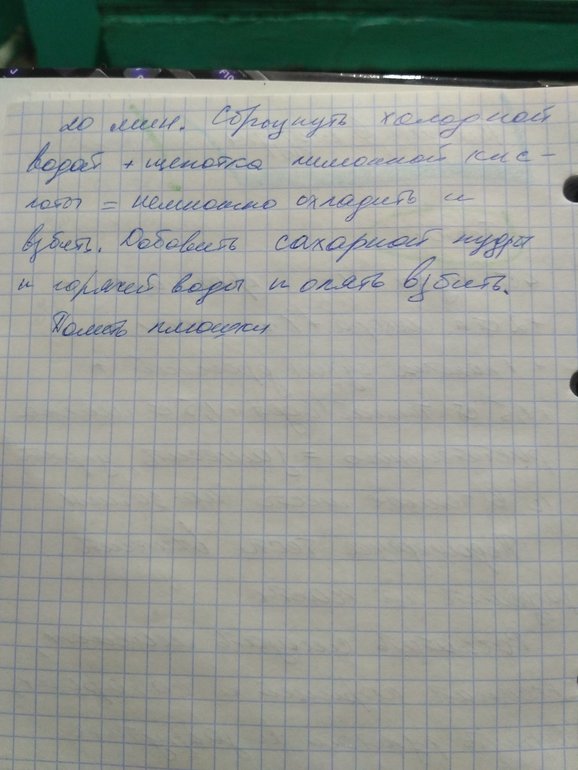 20 мин. Сбрызнуть холодной
водой + щепотка лимонной кис-
лоты = немножко охладить и
взбить. Добавить сахарной пудры
и горячей воды и опять взбить.
Полить плюшки